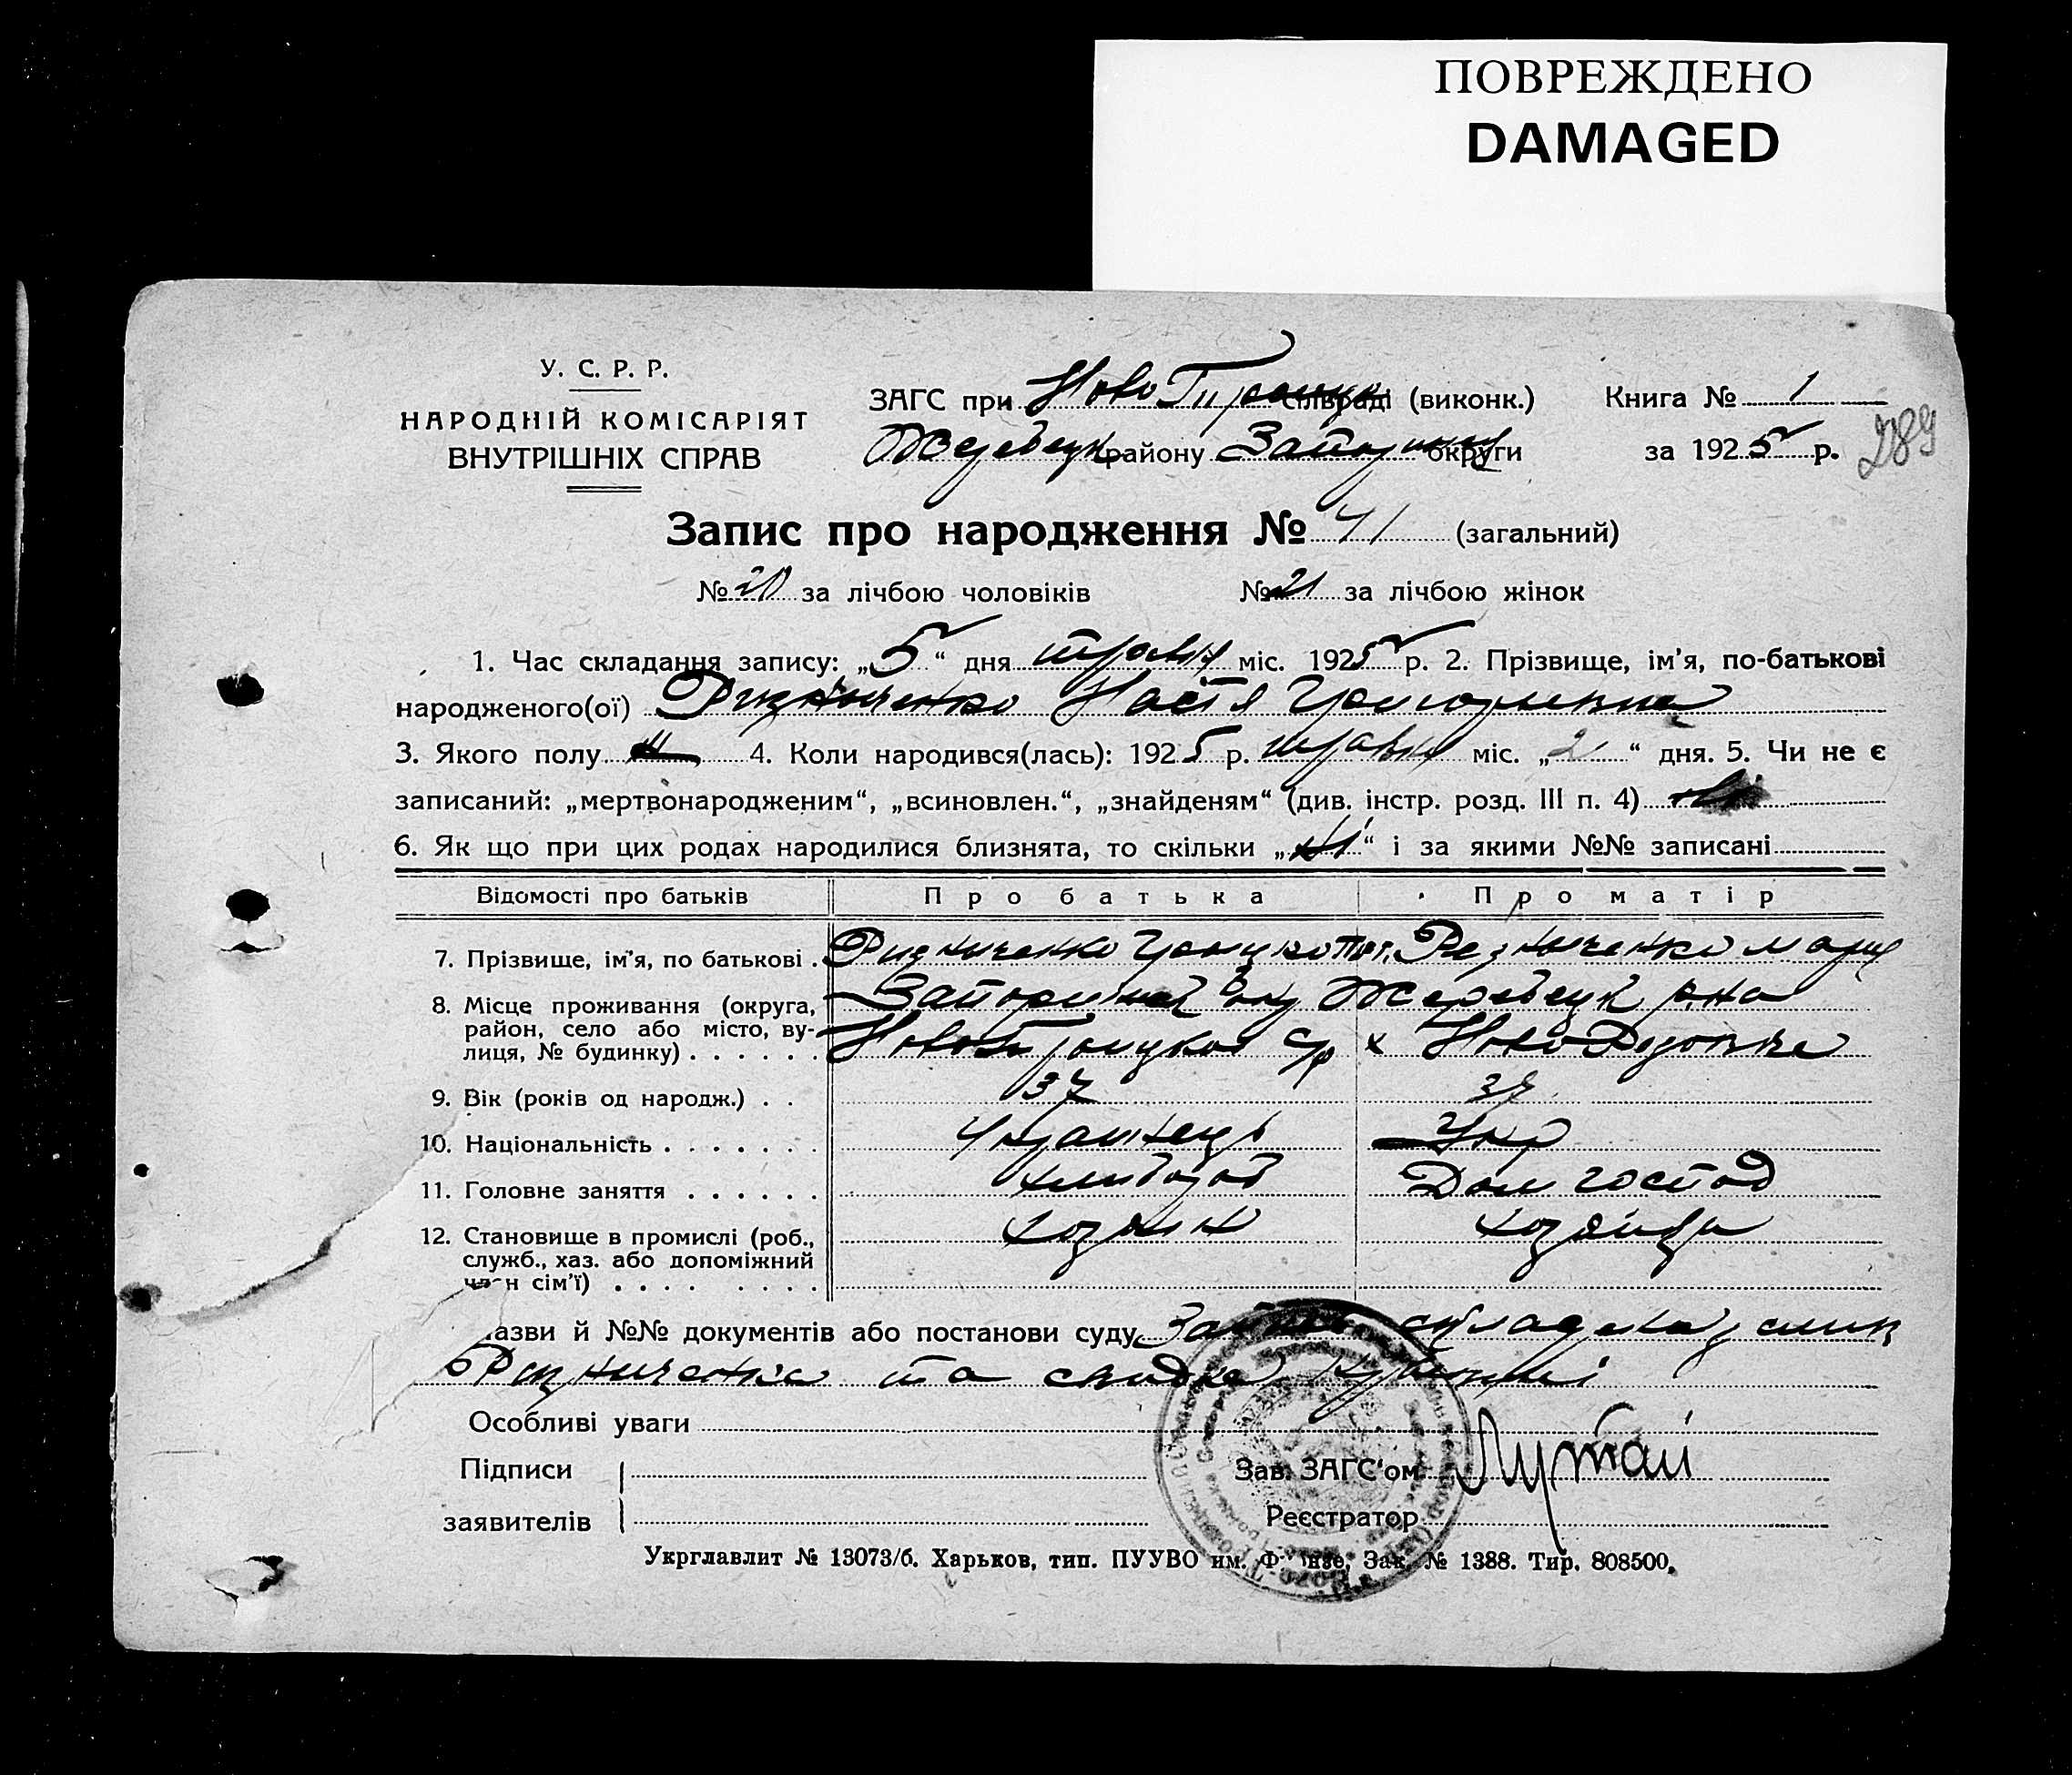 ПОВРЕЖДЕНО
DAMAGED
У. С. Р. Р.
НАРОДНІЙ КОМІСАРІЯТ
ВНУТРІШНІХ СПРАВ
ЗАГС при Ново сільраді (виконк.) Книга № 1
Жеребецк району округи за 1925 р. 289
Запис про народження № 41 (загальний)
№ 20 за лічбою чоловіків № 21 за лічбою жінок
1. Час складання запису: „5“ дня травн міс. 1925 р. 2. Прізвище, ім’я, по-батькові
народженого(ої) Ризниченко Настя
3. Якого полу 4. Коли народився(лась): 1925 р. травн міс. „2“ дня. 5. Чи не є
записаний: „мертвонародженим“, „всиновлен.“, „знайденям“ (див. інстр. розд. III п. 4)
6. Як що при цих родах народилися близнята, то скільки „ “ і за якими №№ записані
Відомості про батьків Про батька Про матір
7. Прізвище, ім’я, по батькові Ризниченко Резниченко Мария
8. Місце проживання (округа, Жеребецк р-на
район, село або місто, ву-
лиця, № будинку) с/р х
9. Вік (років од народж.) 37
10. Національність Українець Укр
11. Головне заняття хлибороб Дом господ
12. Становище в промислі (роб., хозяин хозяйка
служб., хаз. або допоміжний
член сім’ї)
назви й №№ документів або постанови суду
Ризниченка та
Особливі уваги
Підписи Зав. ЗАГС‘ом Лутай
заявителів Реєстратор
Укрглавлит № 13073/б. Харьков, тип. ПУУВО им. Зак. № 1388. Тир. 808500.